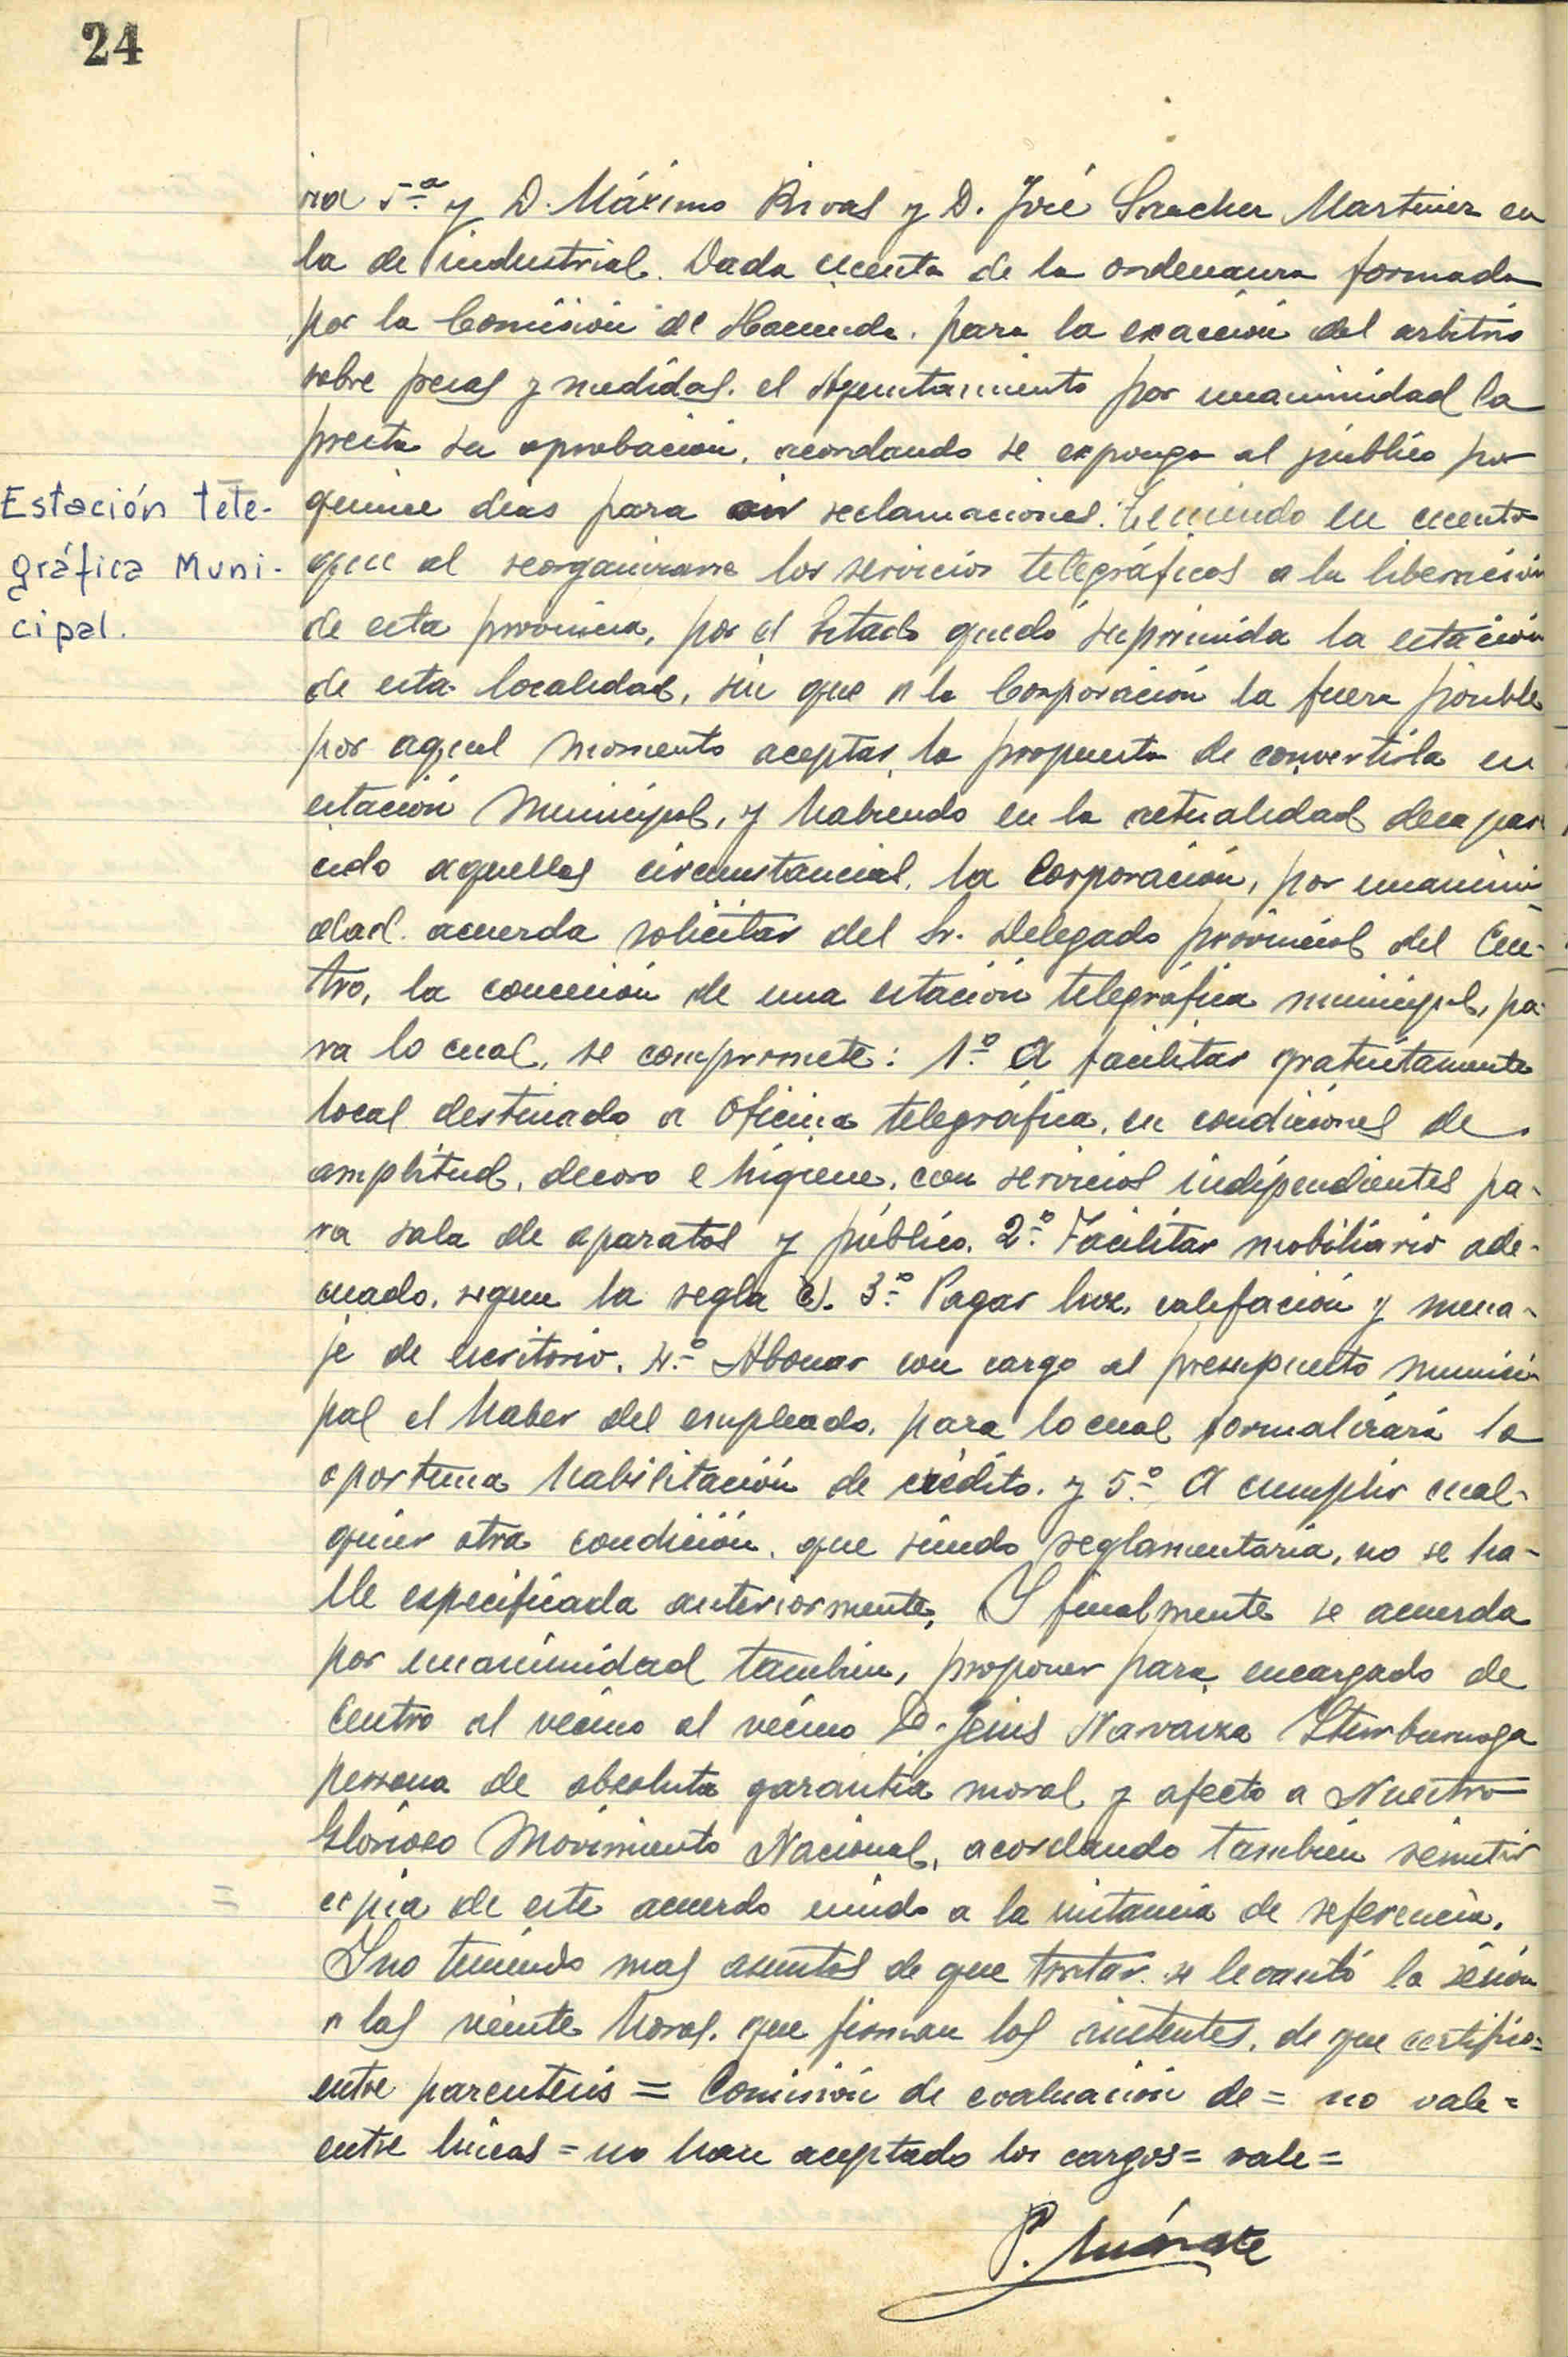 24
ria 5.ª y D. Máximo Rivas y D. José Sanchez Martinez en
la de industrial. Dada cuenta de la ordenanza formada
por la Comisión de Hacienda, para la exacción del arbitrio
sobre pesas y medidas, el Ayuntamiento por unanimidad la
presta su aprobación, acordando se exponga al público por
Estación tele-
gráfica Muni-
cipal.
quince dias para oir reclamaciones. Teniendo en cuenta
que al reorganizarse los servicios telegráficos a la liberación
de esta provincia, por el Estado quedó suprimida la estación
de esta localidad, sin que a la Corporación la fuera posible
por aquel momento aceptar, la propuesta de convertirla en
estación Municipal, y habiendo en la actualidad desapare
cido aquellas circunstancias, la Corporación, por unanimi-
dad acuerda solicitar del Sr. Delegado provincial del Cen-
tro, la concesión de una estación telegráfica municipal, pa-
ra lo cual, se compromete: 1.º A facilitar gratuitamente
local destinado a Oficina telegráfica, en condiciones de
amplitud, decoro e higiene, con servicios independientes pa-
ra sala de aparatos y público. 2.º Facilitar mobiliario ade-
cuado, segun la regla c). 3.º Pagar luz, calefacción y mena-
je de escritorio. 4.º Abonar con cargo al presupuesto munici-
pal el haber del empleado, para lo cual formalizará la
oportuna habilitación de crédito. y 5.º A cumplir cual-
quier otra condición, que siendo reglamentaria, no se ha-
lle especificada anteriormente. Y finalmente se acuerda
por unanimidad tambien, proponer para encargado de
Centro al vecino al vecino D. Jesus Narvaiza
persona de absoluta garantia moral y afecto a Nuestro
Glorioso Movimiento Nacional, acordando también remitir
copia de este acuerdo unido a la instancia de referencia.
Y no teniendo mas asuntos de que tratar se levantó la sesión
a las veinte horas, que firman los asistentes, de que certifico=
entre parentesis = Comisión de evaluación de = no vale =
entre lineas = no han aceptado los cargos = vale =